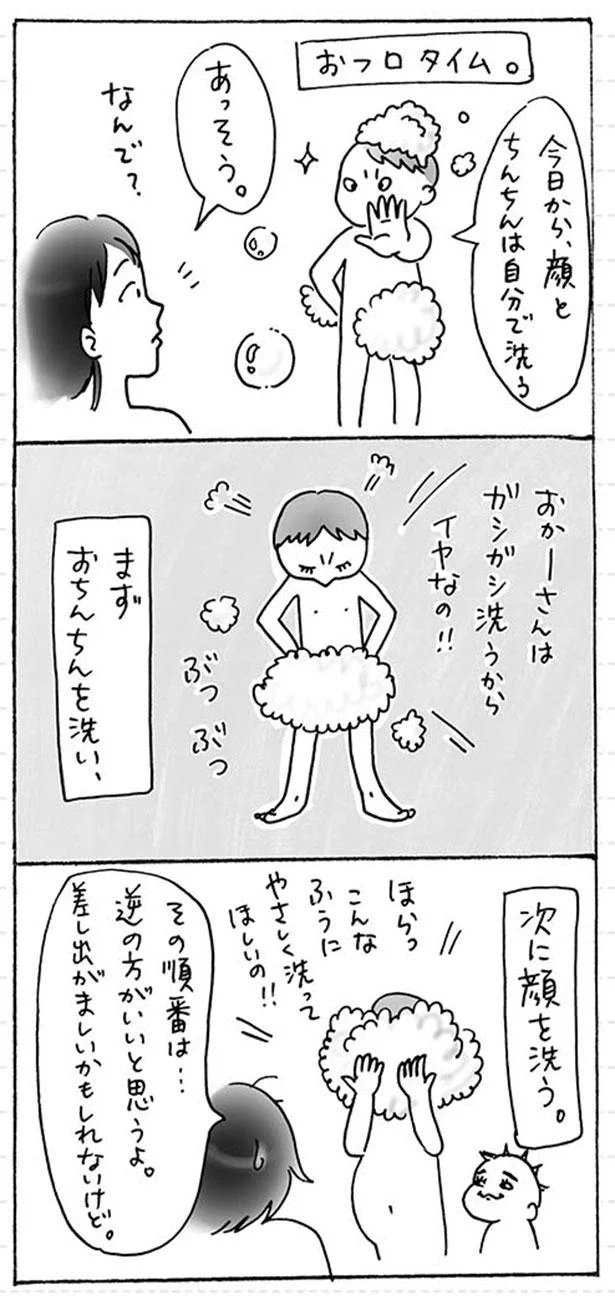 おフロタイム。
今日から、顔と
ちんちんは自分で洗う
あっそう。
なんで？
おかーさんは
ガシガシ洗うから
イヤなの!!
ぶつ
ぶつ
まず
おちんちんを洗い、
次に顔を洗う。
ほらっ
こんな
ふうに
やさしく洗って
ほしいの!!
その順番は…
逆の方がいいと思うよ。
差し出がましいかもしれないけど。